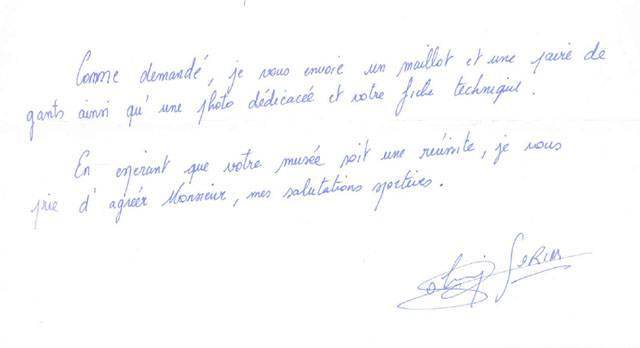 Comme demandé, je vous envoie un maillot et une paire de
gants ainsi qu'une photo dédicacée et votre fiche technique.
En espérant que votre musée soit une réussite, je vous
prie d'agréer Monsieur, mes salutations sportives.